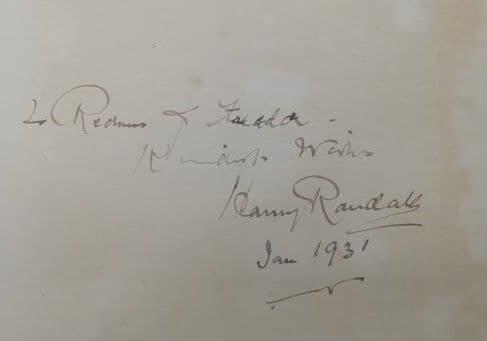 To Redmus & Freda -
Kindest Wishes
Harry Randall
Jan 1931